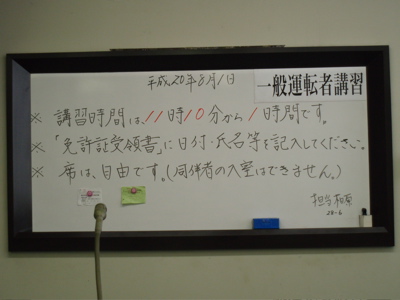 平成20年8月1日
一般運転者講習
※ 講習時間は、11時10分から1時間です。
※ 「免許証受領書」に日付・氏名等を記入してください。
※ 席は、自由です。(同伴者の入室はできません。)
担当
20-6